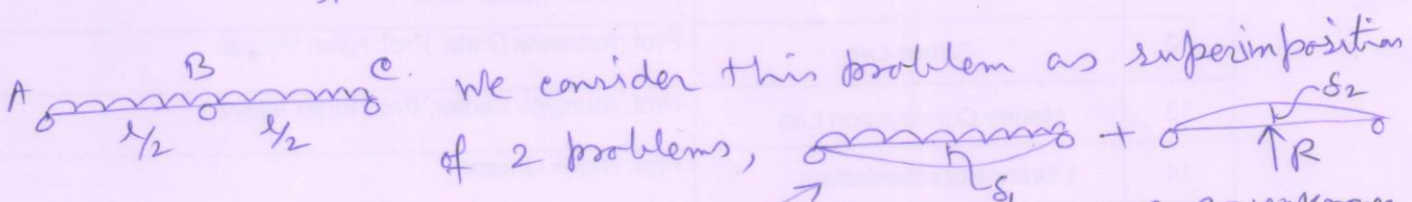 A B C. We consider this problem as superimposition
l/2 l/2 of 2 problems, δ1 + R δ2